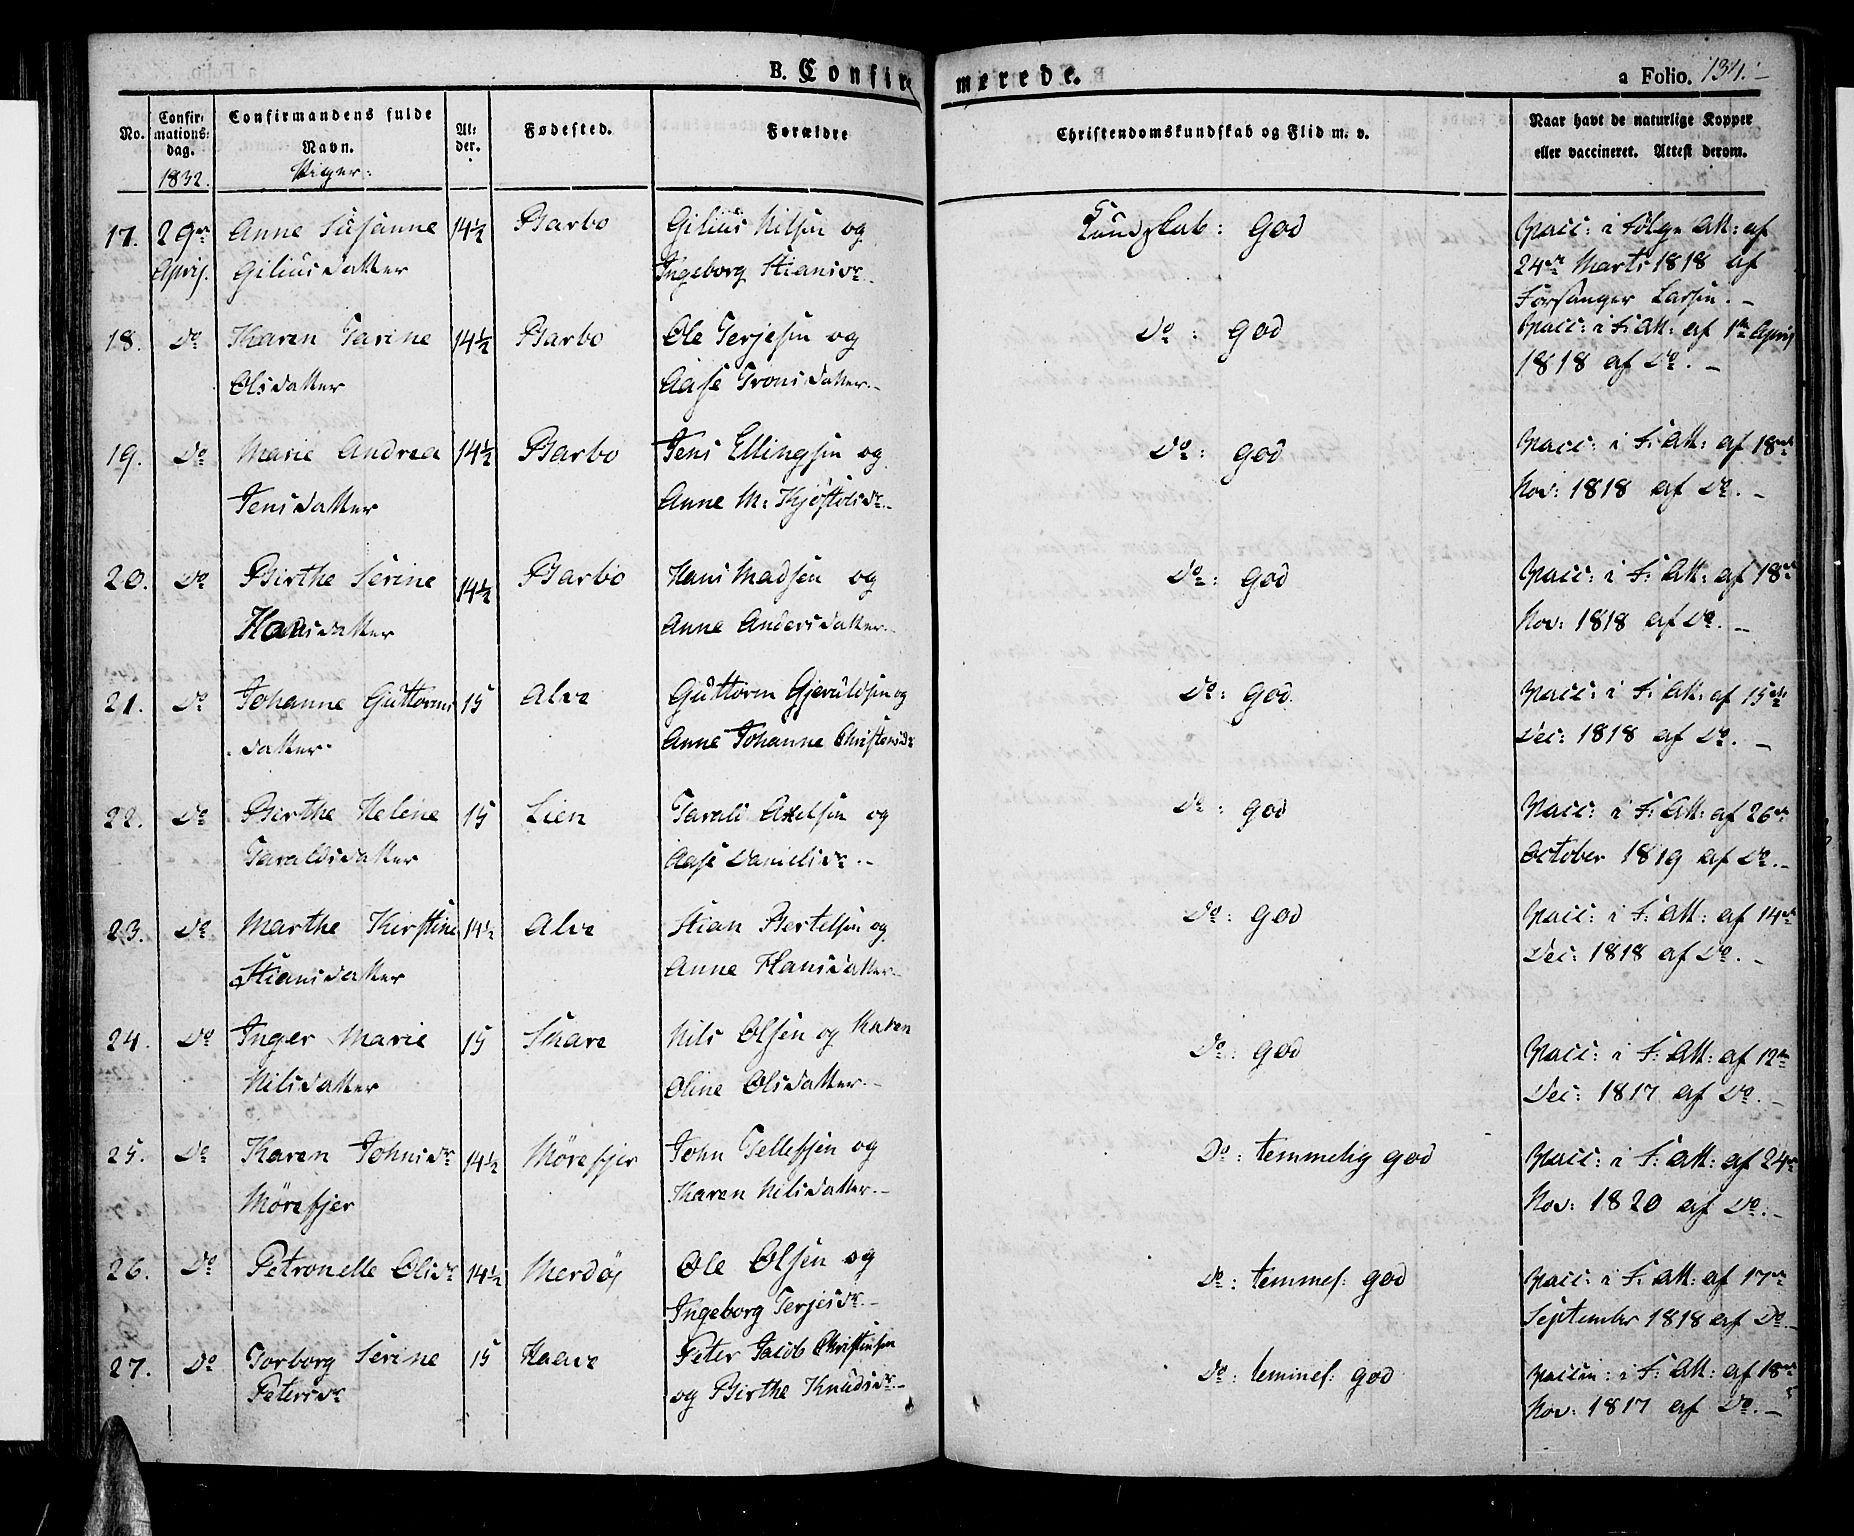 B. Confirmerede.
a Folio. 134.
No.
Confirmations:
dag.
1832.
Confirmandens fulde
Navn.
Piger:
Al:
der.
Fødested.
Forældre
Christendomskundskab og Flid m. v.
Naar havt de naturlige Kopper
eller vaccineret. Attest derom.
17. 29de Anne Susanne 14½ Barbo Gilius Nilsen og Kundskab: god Vacc: i Følge Att: af
April. Gilius datter Ingeborg Stiansdr. 24de Marts 1818 af
Forsanger Larsen. -
18. Do Karen Tarine 14½ Barbo Ole Terjesen og Do: god Vacc: i F: Att: af 1ste April
Olsdatter Aase Tronsdatter. 1818 af Do. -
19. Do Marie Andrea 14½ Barbo Jens Ellingsen og Do: god Vacc: i F: Att: af 18de
Jensdatter Anne M: Kjøstelsdr. Nov: 1818 af Do. -
20. Do Birthe Serine 14½ Barbo Hans Madsen og Do: god Vacc: i F: Att: af 18de
Hansdatter Anne Andersdatter. Nov: 1818 af Do. -
21. Do Johanne Guttorms 15 Alve Guttorm Gjeruldsen og Do: god. Vacc: i F: Att: af 15de
datter Anne Johanne Christensdr Dec: 1818 af Do. -
22. Do Birthe Helene 15 Lien Tarald Axelsen og Do: god Vacc: i F: Att: af 26de
Taraldsdatter Aase Danielsdr. October 1819 af Do. -
23. Do Marthe Kirstine 14½ Alve Stian Bertelsen og Do: god Vacc: i F: Att: af 14de
Stiansdatter Anne Hansdatter. Dec: 1818 af Do. -
24. Do Inger Marie 15 Skare Nils Olsen og Karen Do: god Vacc: i F: Att: af 12te
Nilsdatter Oline Olsdatter. Dec: 1817 af Do. -
25. Do Karen Johnsdr 14½ Mørefjer John Tellefsen og Do: temmelig god Vacc: i F: Att: af 24de
Mørefjer Karen Nilsdatter. Nov: 1820 af Do. -
26. Do Petronelle Olsdr 14½ Merdø Ole Olsen og Do: temmel: god Vacc: i F: Att: af 17de
Ingeborg Terjesdr. September 1818 af Do. -
27. Do Torborg Serine 15 Haave Peter Jacob Christensen Do: temmel: god Vaccin: i F: Att: af 18de
Petersdr og Birthe Knudsdr. Nov: 1817 af Do. -